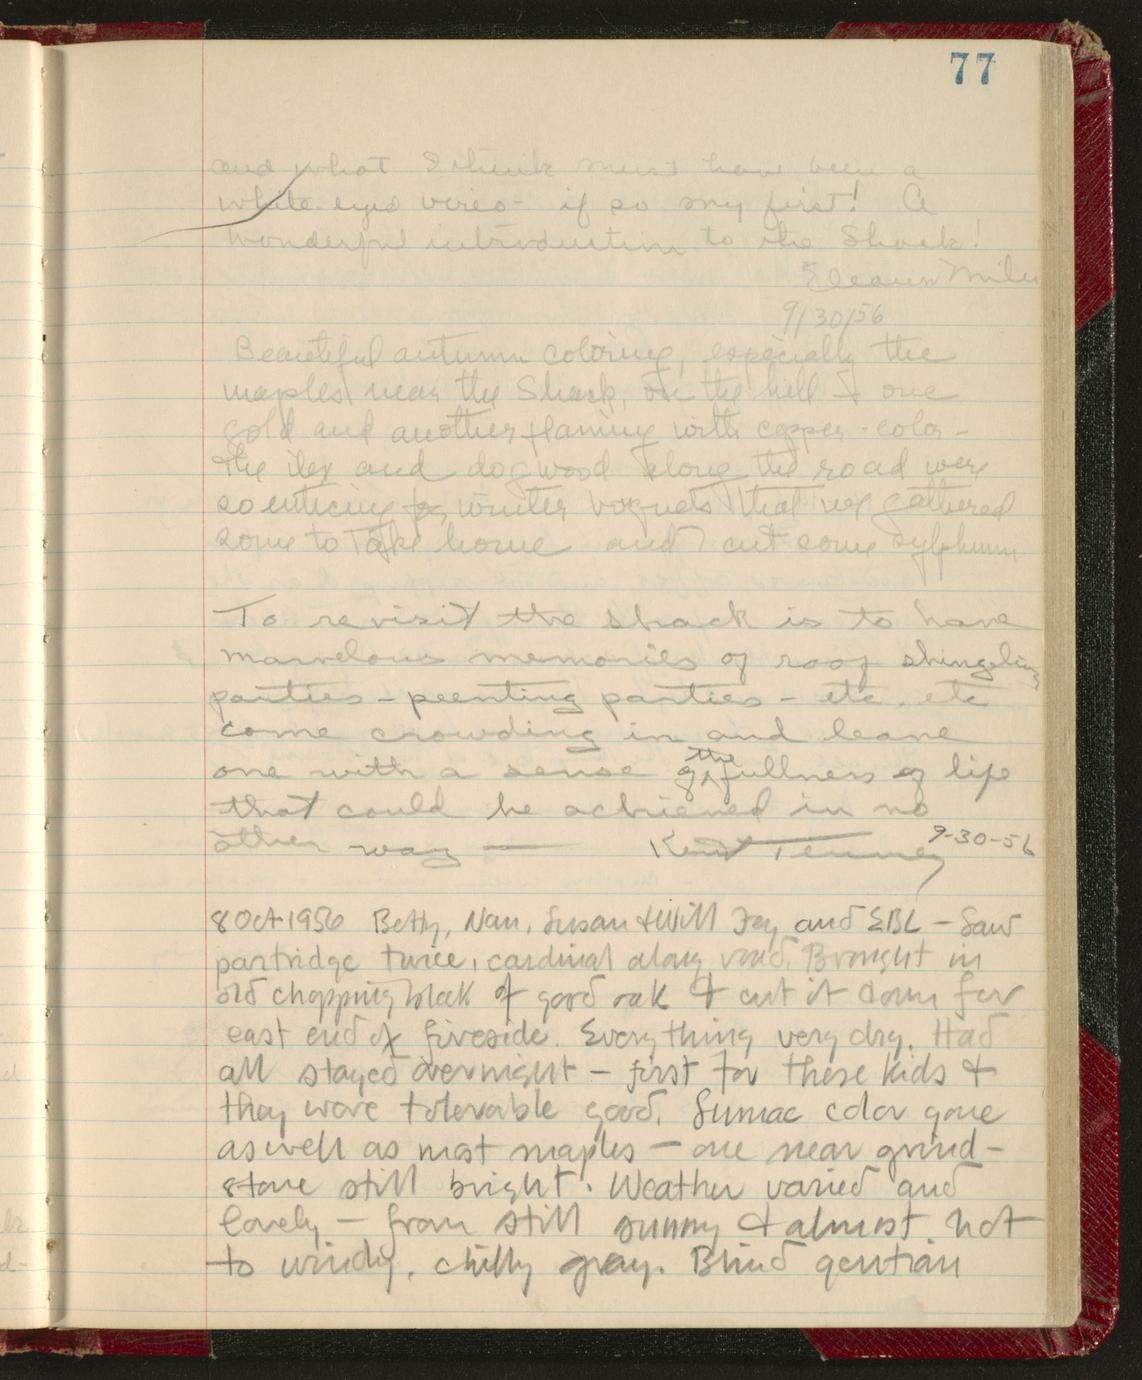 77
and what I think must have been a
white eyed vireo - if so my first! A
wonderful introduction to the Shack!
9/30/56
Beautiful autumn coloring, especially the
maples near the Shack, on the hill & one
gold and another flaming with copper-color -
The ilex and dogwood along the road were
so enticing for winter boquets that we gathered
some to take home and I cut some sylphium
To revisit the shack is to have
marvelous memories of roof shingeling
parties - peenting parties - etc. etc
come crowding in and leave
one with a sense of the fullness of life
that could be achieved in no
other way — Kent Tenney 9-30-56
8 Oct 1956 Betty, Nan, Susan & Will Fey and EBL - Saw
partridge twice, cardinal along road. Brought in
old chopping block of good oak & cut it down for
east end of fireside. Everything very dry. Had
all stayed overnight - first for these kids &
they were tolerable good. Sumac color gone
as well as most maples - one near grind-
stone still bright. Weather varied and
lovely - from still sunny & almost hot
to windy, chilly gray. Blind gentian